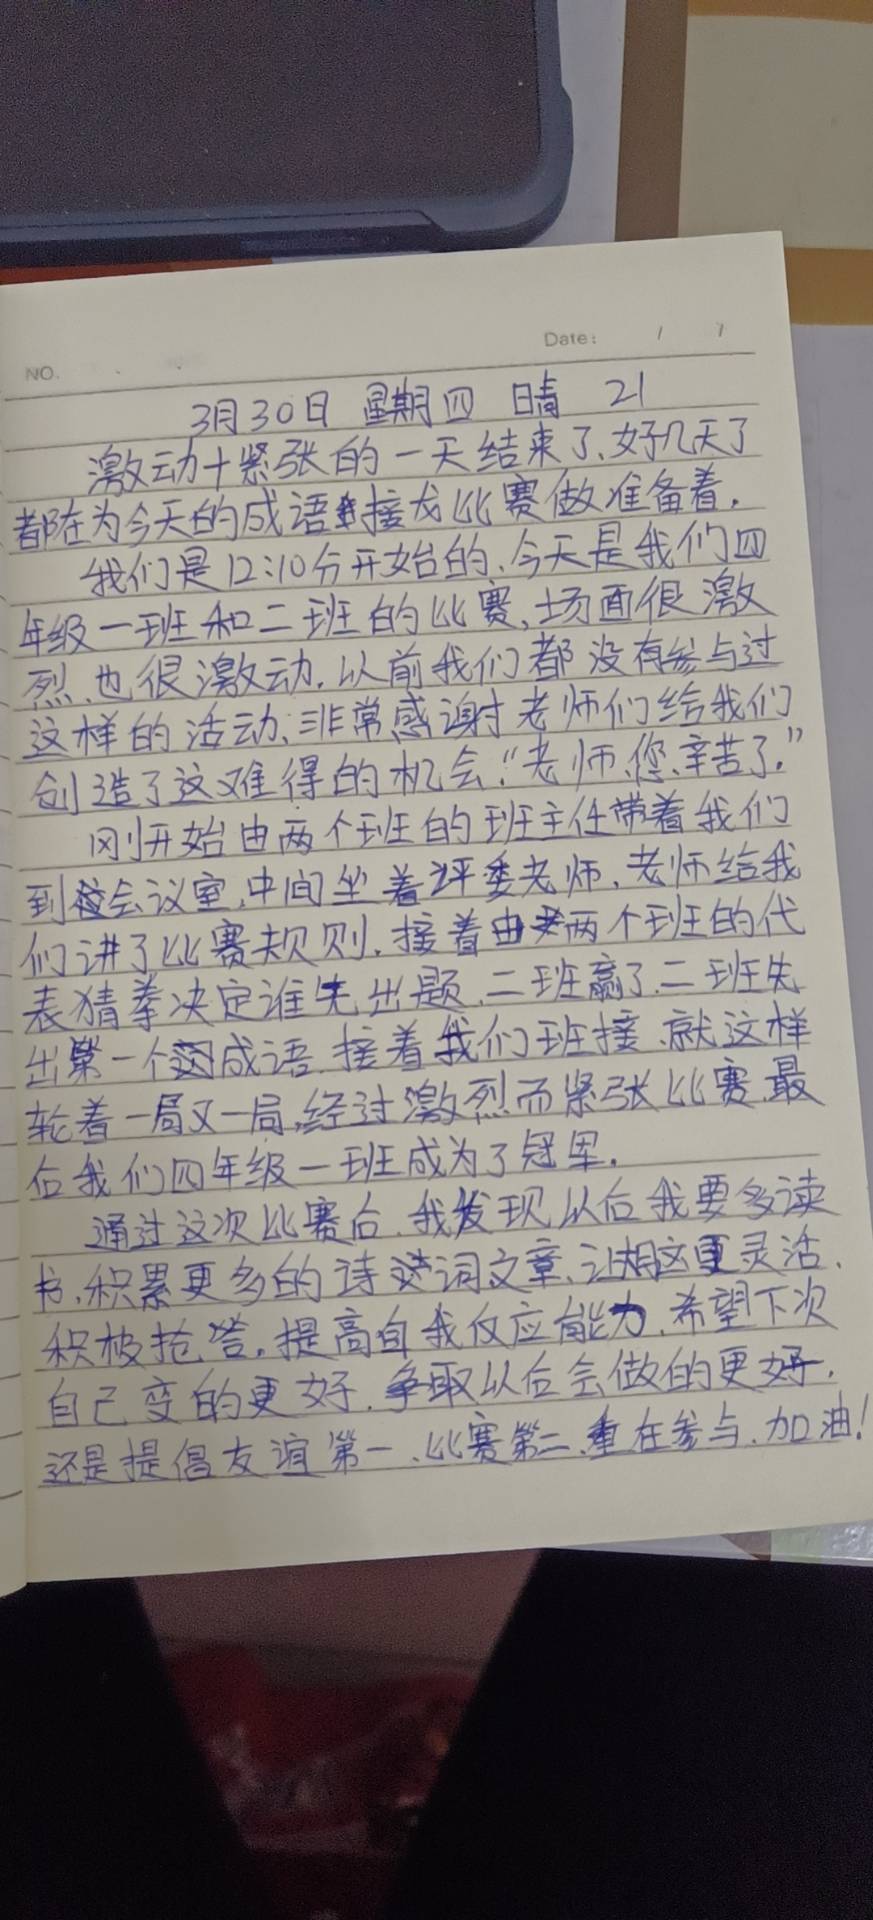 NO.
Date: / /
3月30日 星期四 晴 21
激动+紧张的一天结束了、好几天了
都在为今天的成语接龙比赛做准备着.
我们是12:10分开始的、今天是我们四
年级一班和二班的比赛、场面很激
烈、也很激动.以前我们都没有参与过
这样的活动、非常感谢老师们给我们
创造了这难得的机会!"老师、您、辛苦了."
刚开始由两个班的班主任带着我们
到会议室、中间坐着评委老师、老师给我
们讲了比赛规则.接着由两个班的代
表猜拳决定谁先出题、二班赢了、二班先
出第一个成语、接着我们班接、就这样
轮着一局又一局,经过激烈而紧张比赛、最
后我们四年级一班成为了冠军.
通过这次比赛后、我发现以后我要多读
书、积累更多的诗词文章、让更灵活、
积极抢答.提高自我仅应能力、希望下次
自己变的更好、争取以后会做的更好.
还是提倡友谊第一、比赛第二、重在参与、加油!